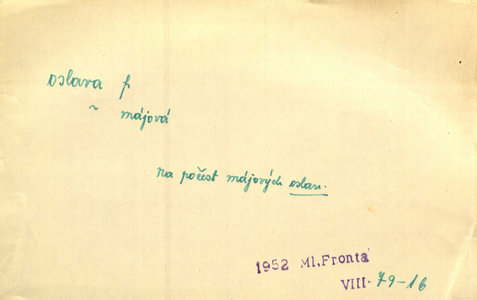 oslava f
~ májová
na počest májových oslav.
1952 Ml.Fronta
VIII. 79-16